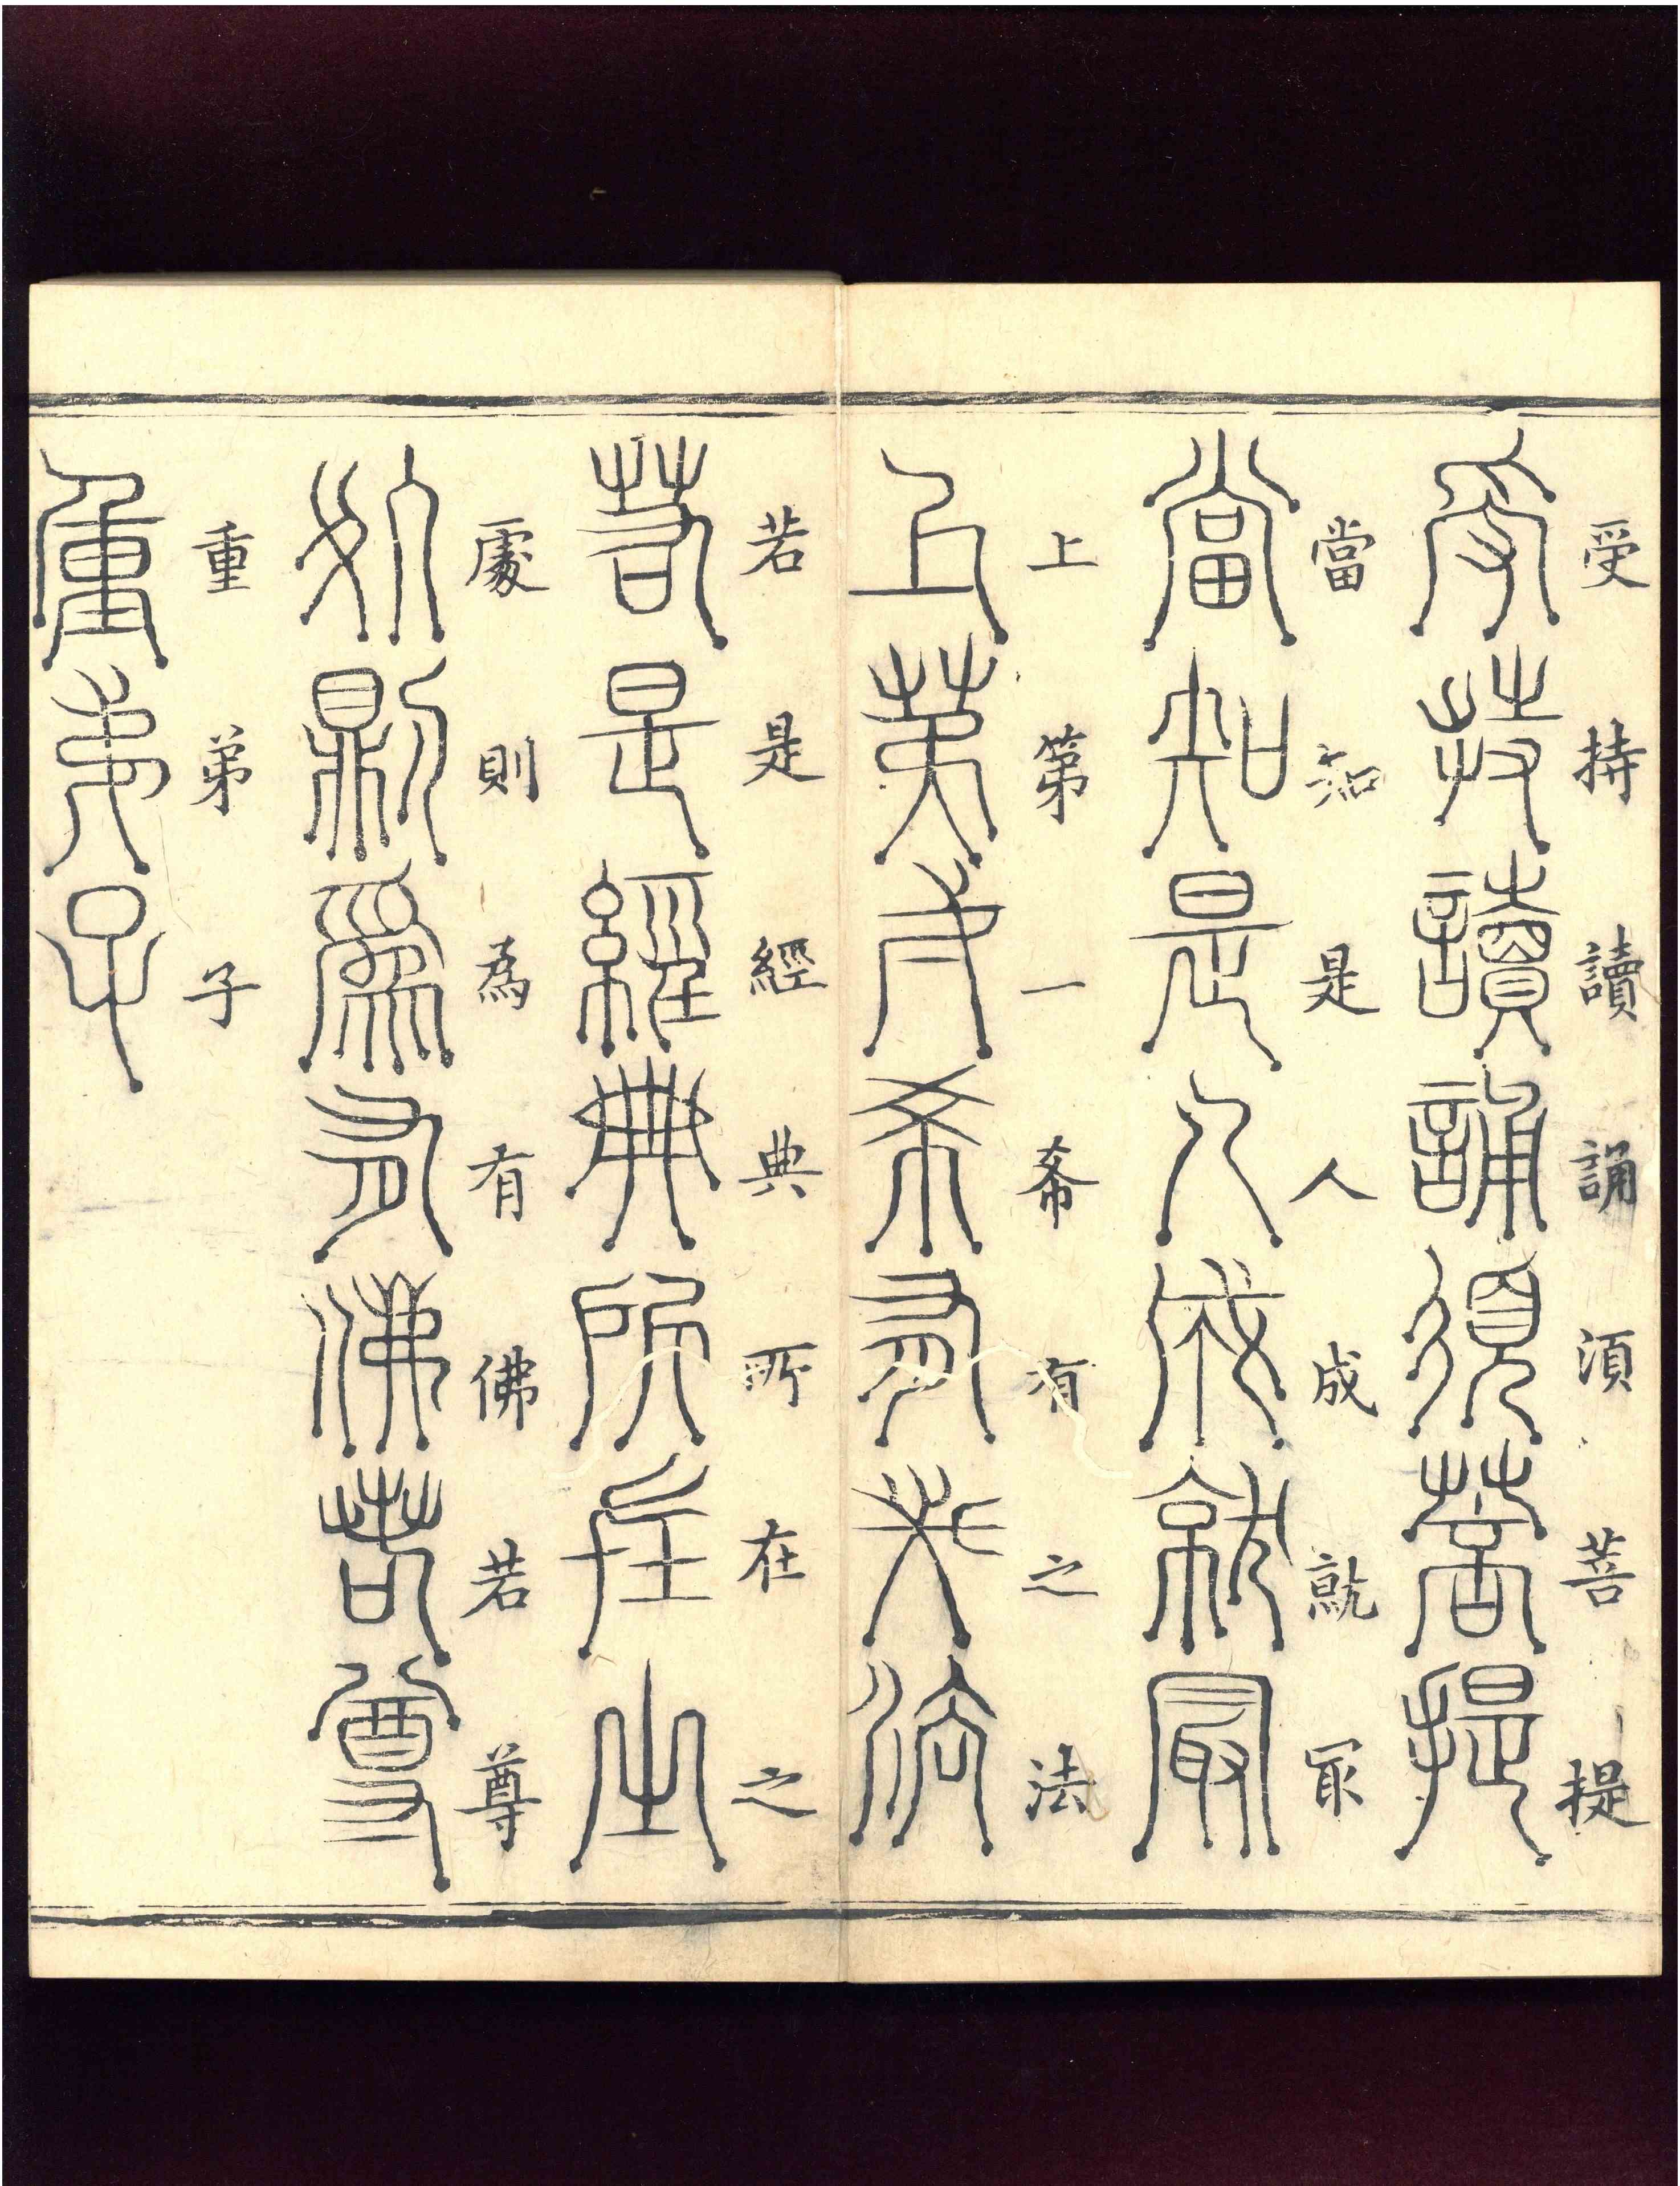 受持讀誦湏菩提
受持讀誦須菩提
當知是人成就冣
當知是人成就冣
上第一希有之法
上第一希有之法
若是經典所在之
若是經典所在之
處則為有佛若尊
處則為有佛若尊
重弟子
重弟子